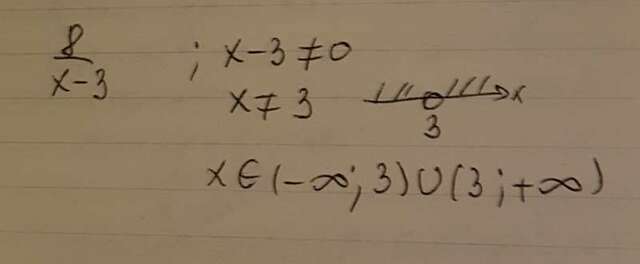 8/(x-3) ; x-3≠0
x≠3 x
3
x∈(-∞;3)∪(3;+∞)